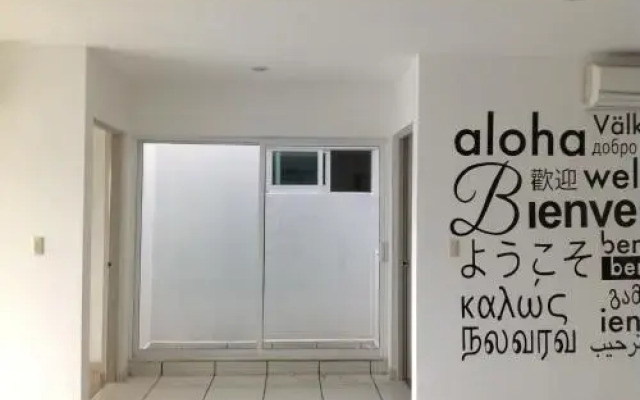 aloha Välk
добро
歡迎 wel
Bienve
ようこそ ben
ben
καλώς გამ
ien
நலவரவு ترحيب